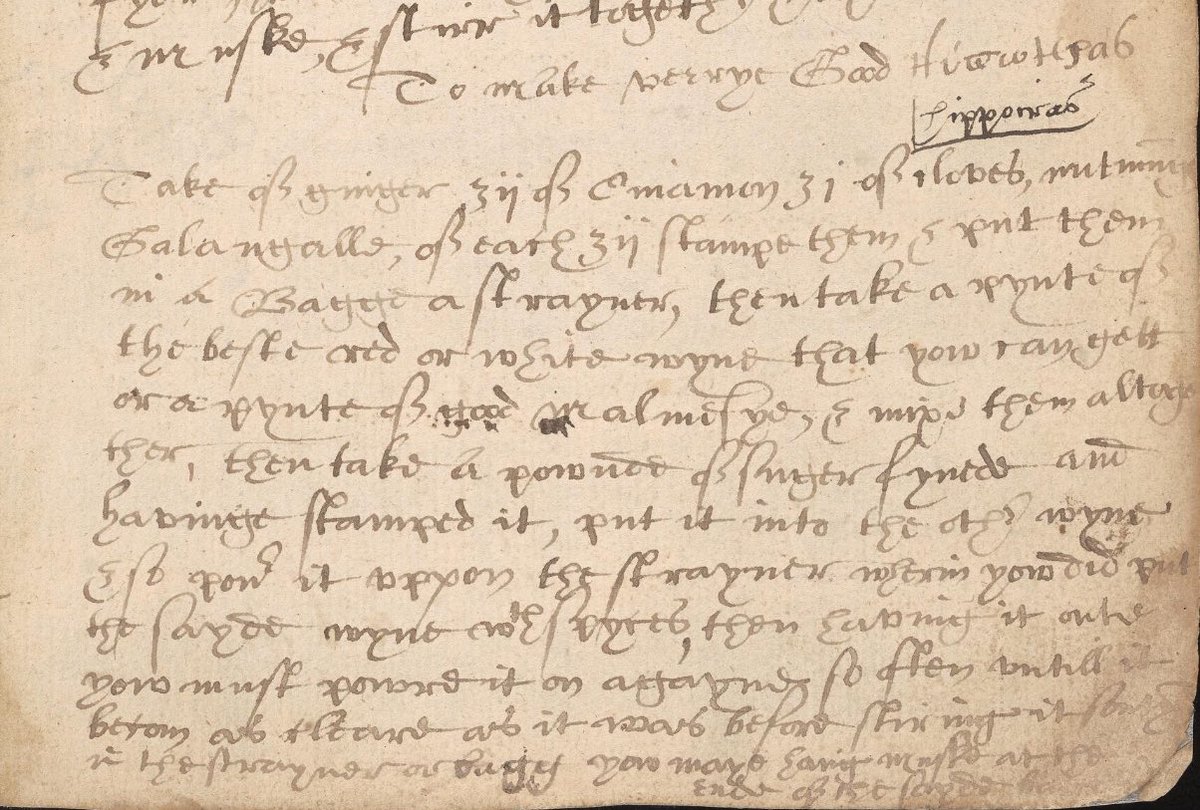 & muske, & stirr it togethr
To make verrye Good Hi
hippocras
Take of ginger ʒij of Cinamon ʒj of cloves, nutmu
Galangalle, of each ʒij stampe them & put them
in a Bagge a strayner, then take a pynte of
the beste red or white wyne that yow can gett
or a pynte of good Malmesye, & mixe them altoge
ther, then take a pownde of suger fynede and
havinge stamped it, put it into the othr wyne
& so powr it vppon the strayner wherin yow did put
the sayde wyne wth spyces, then having it oute
yow must powre it on agayne so ften vntill it
becom as cleare as it was before stiring it
in the strayner or bagg yow maye hang muske at the
ende of the sayde